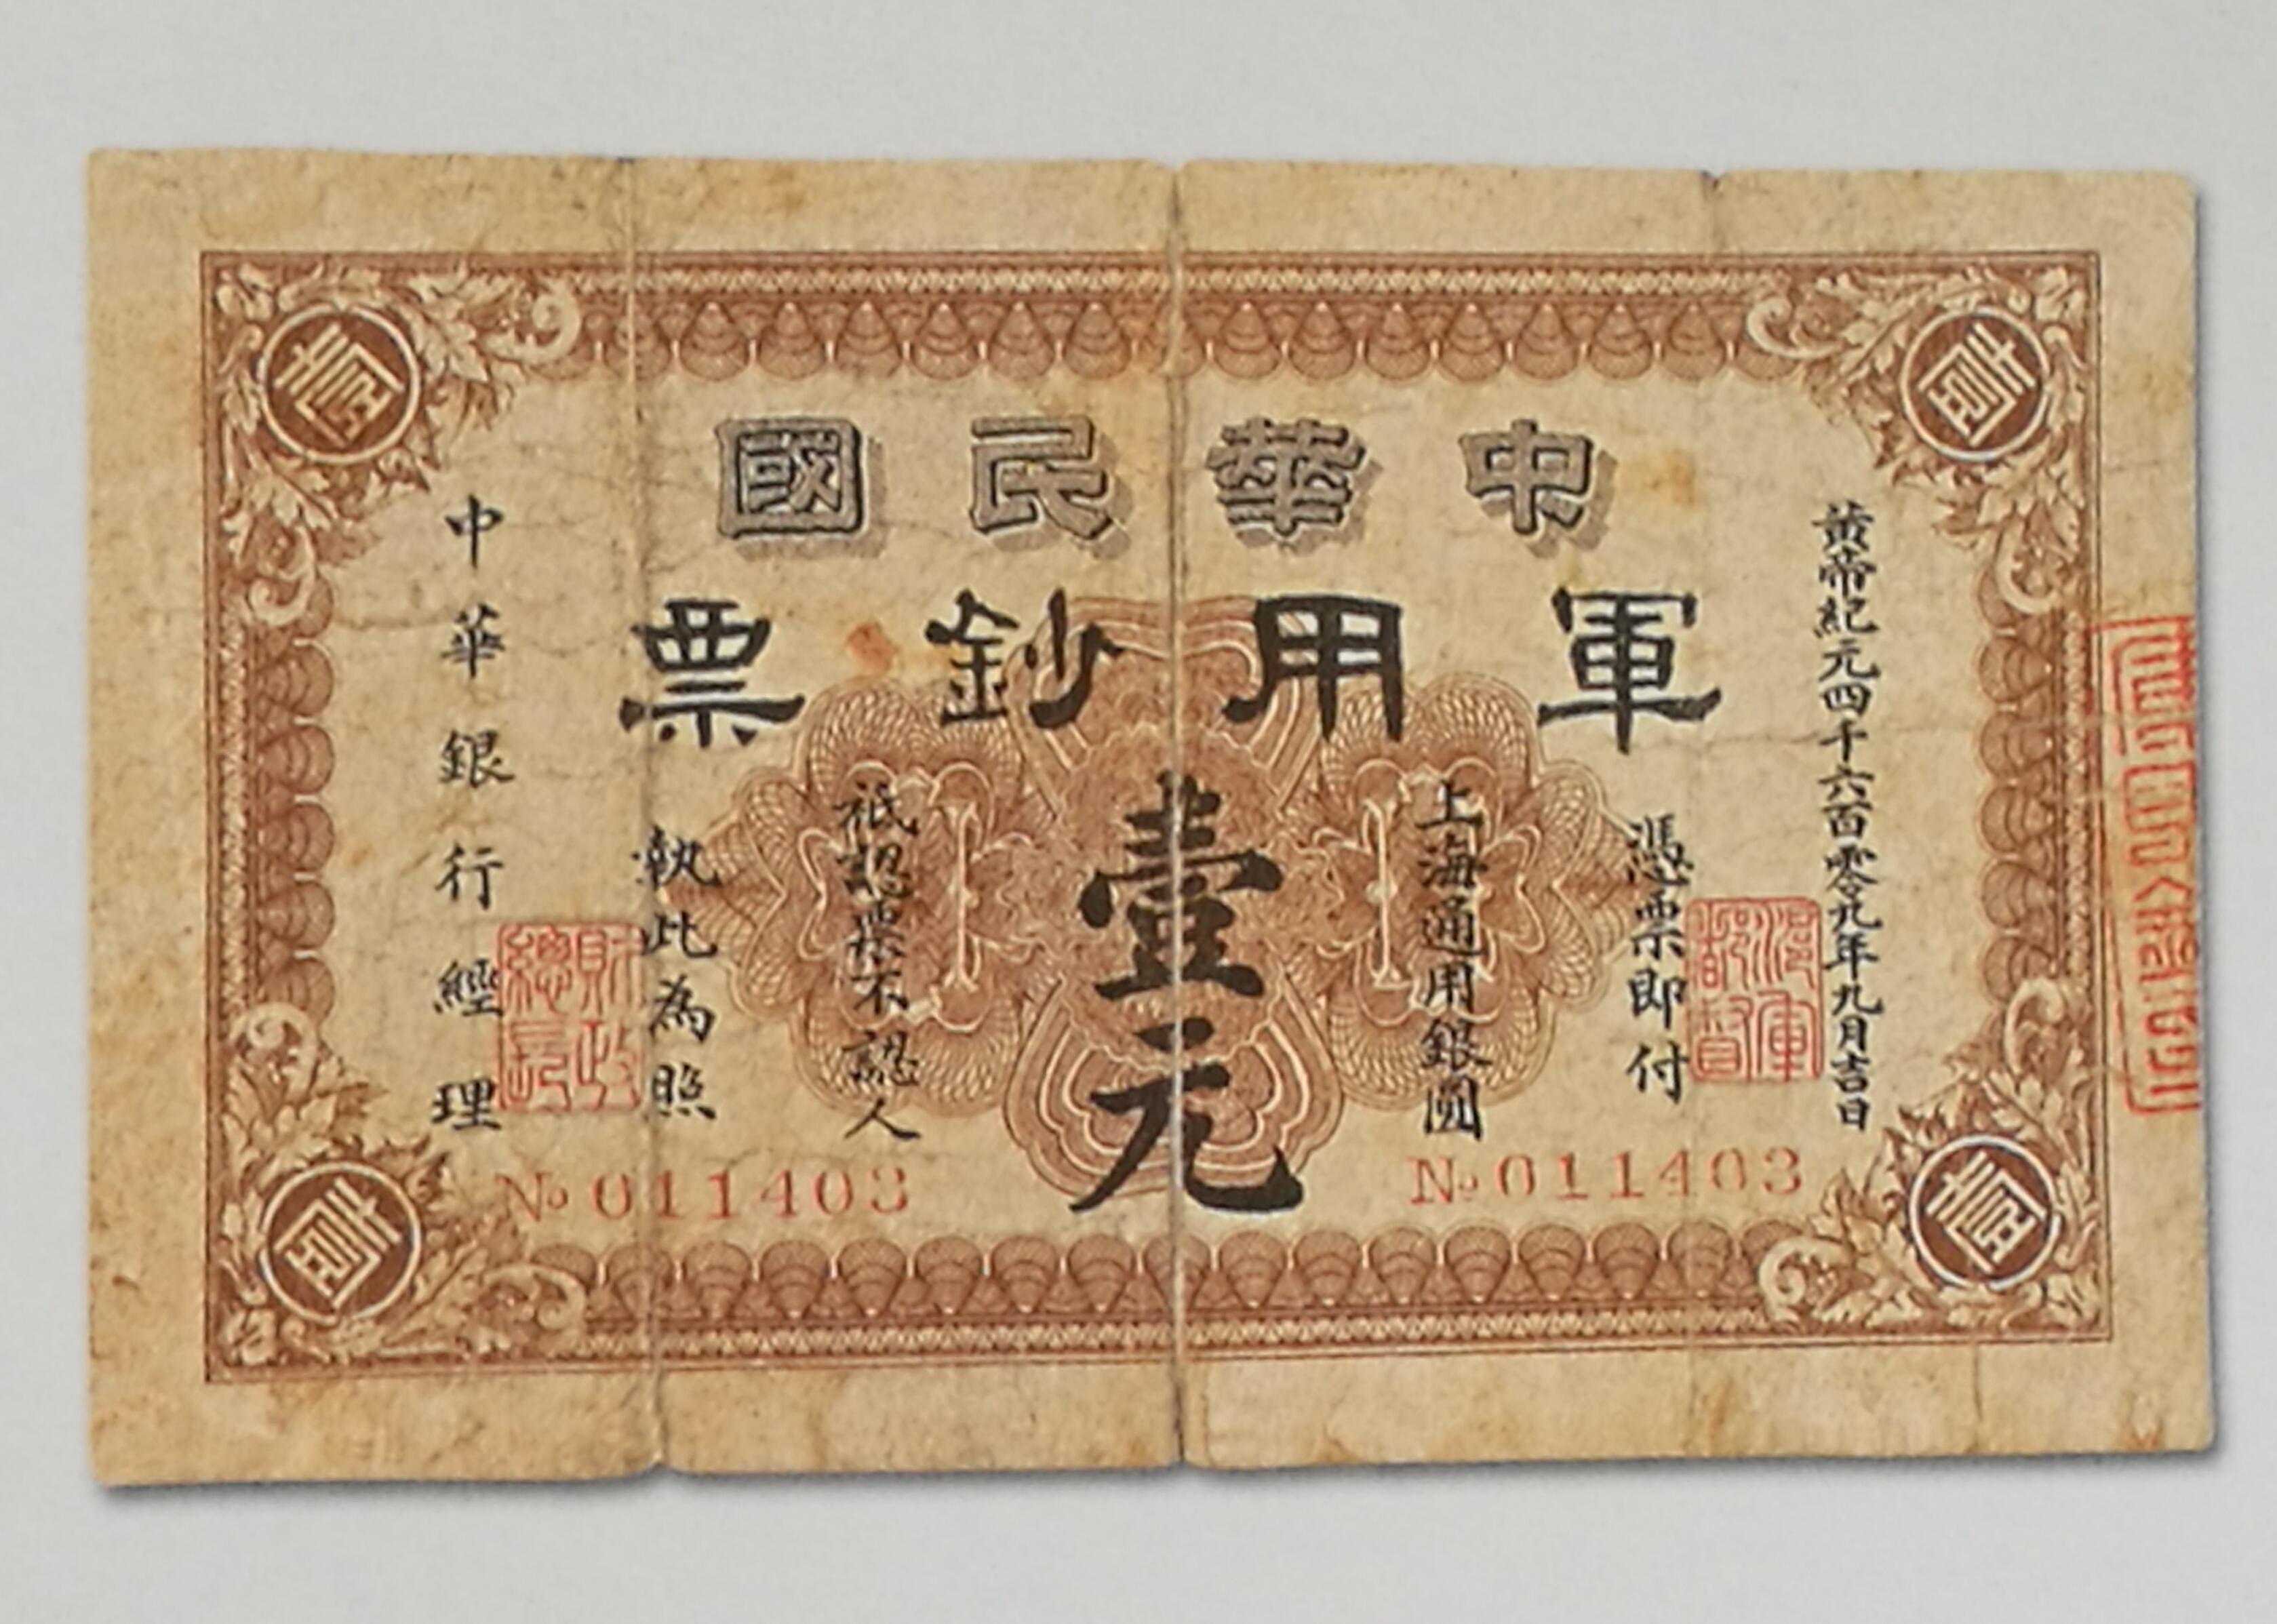 中華民國
軍用鈔票
黃帝紀元四千六百零九年九月吉日
憑票即付
上海通用銀圓
壹元
祇認票不認人
執此為照
中華銀行經理
滬軍都督
財政總長
№011403
№011403
壹
壹
壹
壹